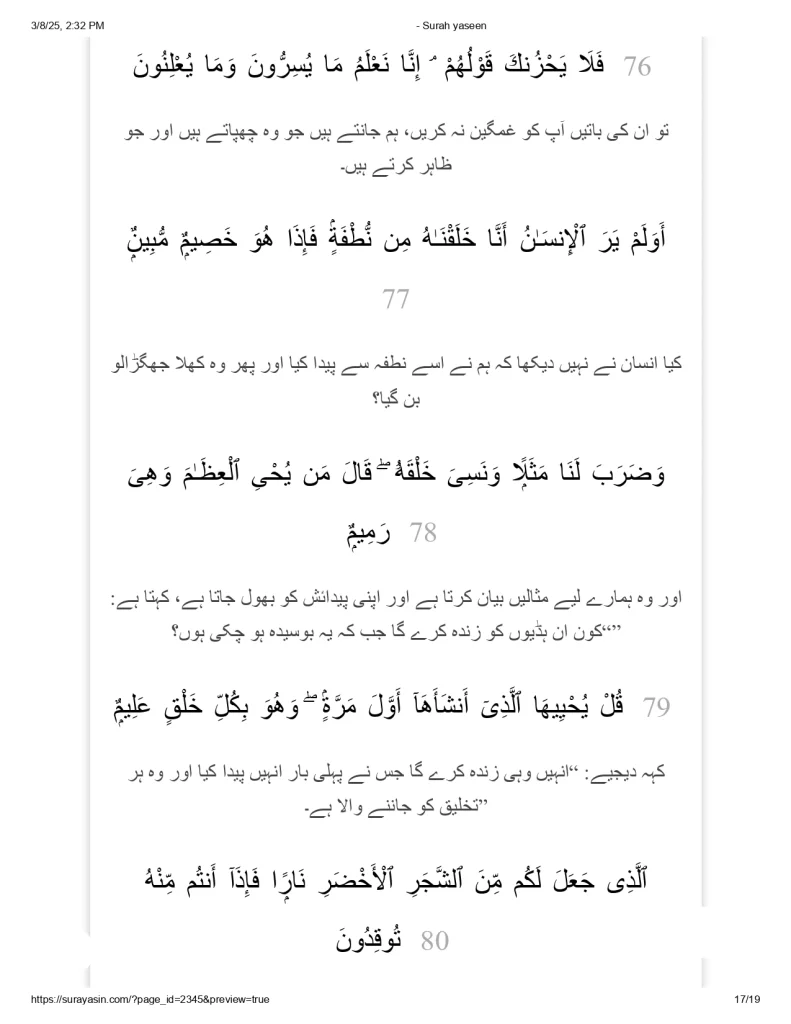 3/8/25, 2:32 PM
- Surah yaseen
فَلَا يَحْزُنكَ قَوْلُهُمْ ۘ إِنَّا نَعْلَمُ مَا يُسِرُّونَ وَمَا يُعْلِنُونَ 76
تو ان کی باتیں آپ کو غمگین نہ کریں، ہم جانتے ہیں جو وہ چھپاتے ہیں اور جو
ظاہر کرتے ہیں۔
أَوَلَمْ يَرَ ٱلْإِنسَـٰنُ أَنَّا خَلَقْنَـٰهُ مِن نُّطْفَةٍۢ فَإِذَا هُوَ خَصِيمٌۭ مُّبِينٌۭ
77
کیا انسان نے نہیں دیکھا کہ ہم نے اسے نطفہ سے پیدا کیا اور پھر وہ کھلا جھگڑالو
بن گیا؟
وَضَرَبَ لَنَا مَثَلًۭا وَنَسِىَ خَلْقَهُۥ ۖ قَالَ مَن يُحْىِ ٱلْعِظَـٰمَ وَهِىَ
رَمِيمٌۭ 78
اور وہ ہمارے لیے مثالیں بیان کرتا ہے اور اپنی پیدائش کو بھول جاتا ہے، کہتا ہے:
”“کون ان ہڈیوں کو زندہ کرے گا جب کہ یہ بوسیدہ ہو چکی ہوں؟
قُلْ يُحْيِيهَا ٱلَّذِىٓ أَنشَأَهَآ أَوَّلَ مَرَّةٍۢ ۖ وَهُوَ بِكُلِّ خَلْقٍ عَلِيمٌۭ 79
کہہ دیجیے: “انہیں وہی زندہ کرے گا جس نے پہلی بار انہیں پیدا کیا اور وہ ہر
”تخلیق کو جاننے والا ہے۔
ٱلَّذِى جَعَلَ لَكُم مِّنَ ٱلشَّجَرِ ٱلْأَخْضَرِ نَارًۭا فَإِذَآ أَنتُم مِّنْهُ
تُوقِدُونَ 80
https://surayasin.com/?page_id=2345&preview=true
17/19